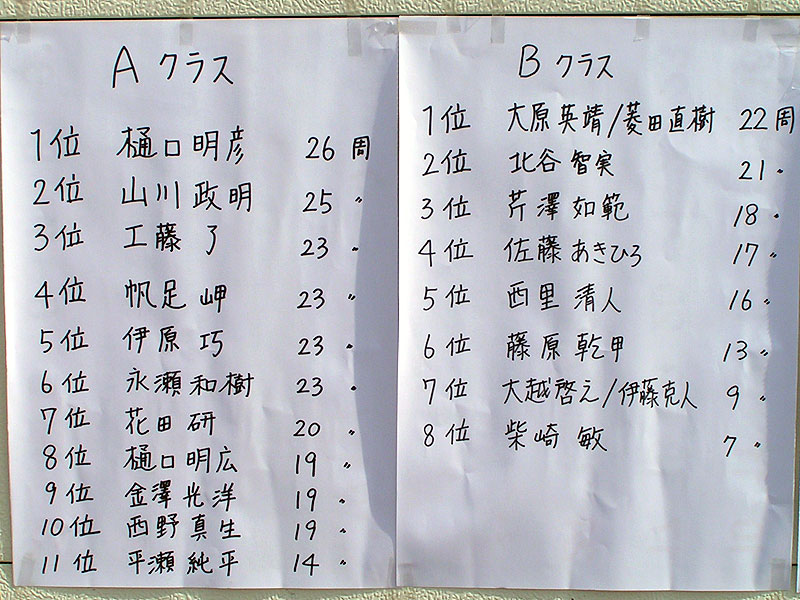 Aクラス
1位 樋口明彦 26周
2位 山川政明 25〃
3位 工藤了 23〃
4位 帆足岬 23〃
5位 伊原巧 23〃
6位 永瀬和樹 23〃
7位 花田研 20〃
8位 樋口明広 19〃
9位 金澤光洋 19〃
10位 西野真生 19〃
11位 平瀬純平 14〃
Bクラス
1位 大原英靖/菱田直樹 22周
2位 北谷智実 21〃
3位 芹澤如範 18〃
4位 佐藤あきひろ 17〃
5位 西里清人 16〃
6位 藤原乾甲 13〃
7位 大越啓え/伊藤克人 9〃
8位 柴崎敏 7〃